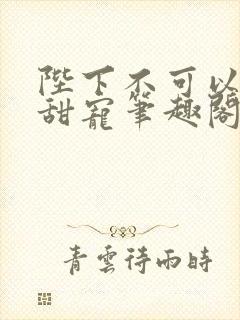 陛下不可以
甜寵筆趣閣
青雲待雨時